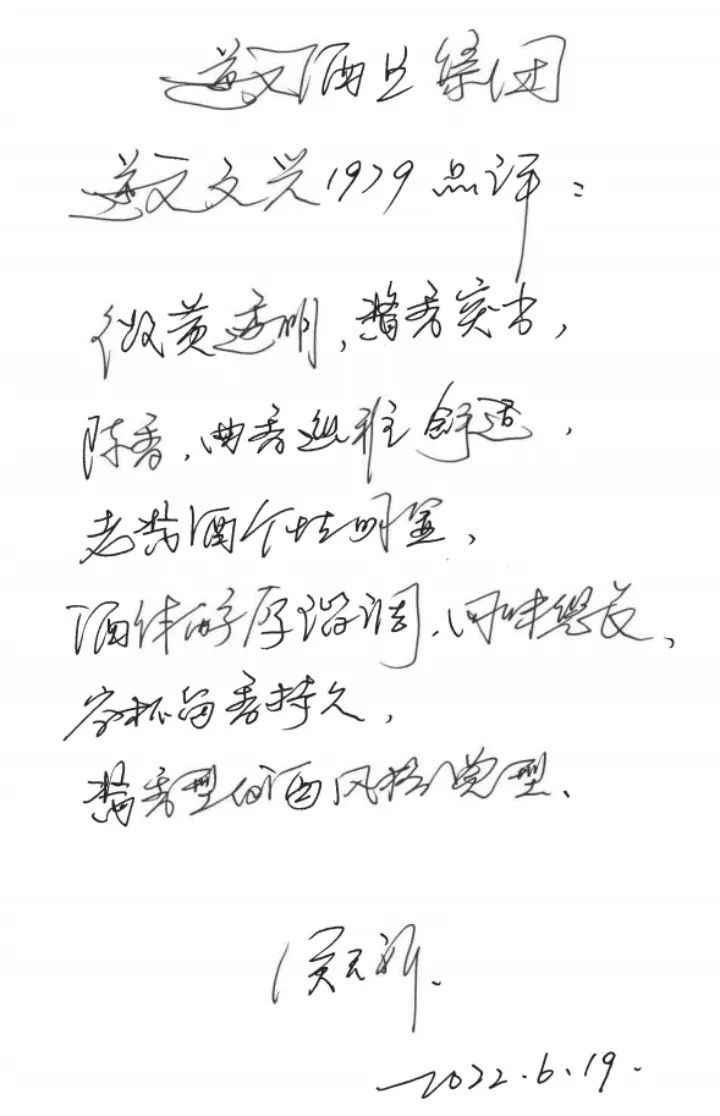 遵义酒业集团
遵义文兴1979点评：
微黄透明，酱香突出，
陈香、曲香幽雅舒适，
老酱酒个性明显，
酒体醇厚协调、回味悠长、
空杯留香持久，
酱香型白酒风格典型、
2022.6.19.